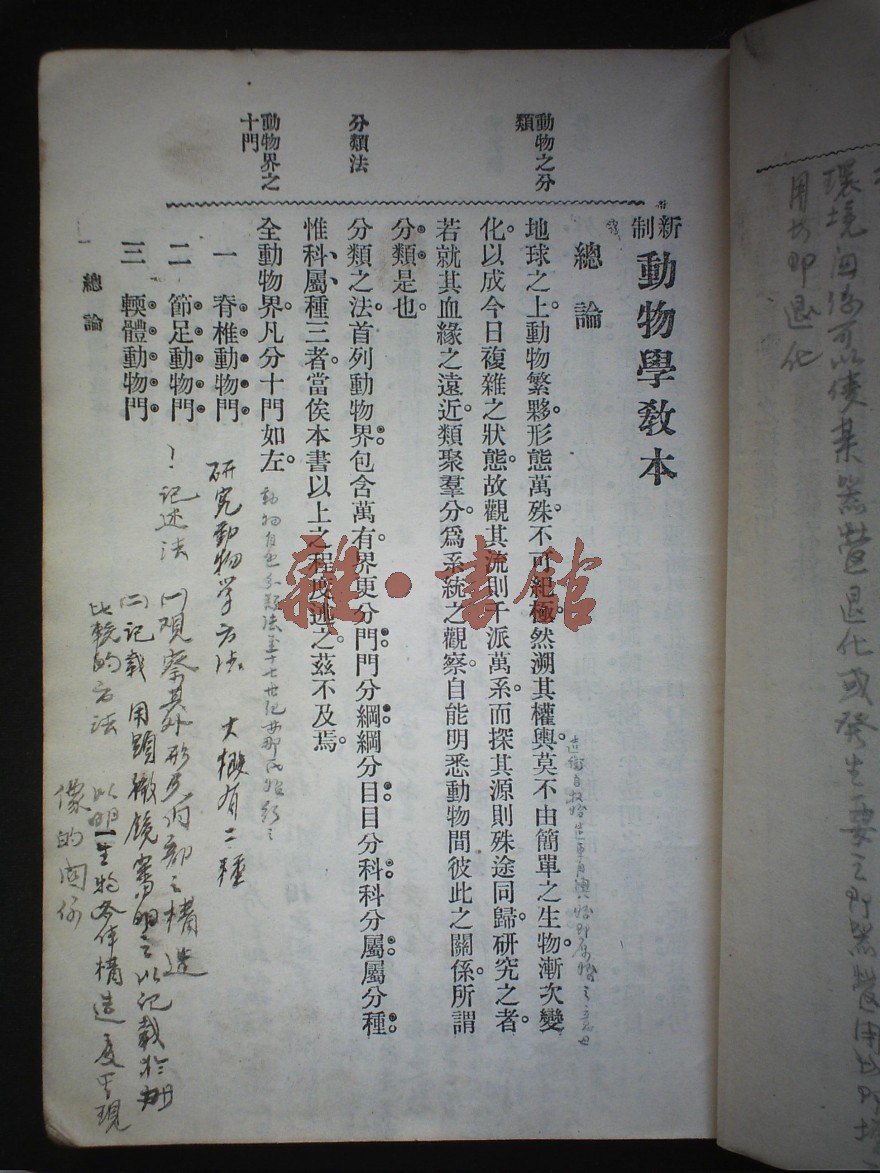 新制
動物學教本
總論
地球之上動物繁夥。形態萬殊。不可紀極。然溯其權輿。莫不由簡單之生物漸次變
化。以成今日複雜之狀態。故觀其流則千派萬系。而探其源則殊途同歸。研究之者。
若就其血緣之遠近。類聚羣分。爲系統之觀察。自能明悉動物間彼此之關係。所謂
分類是也。
分類之法。首列動物界。包含萬有。界更分門。門分綱。綱分目。目分科。科分屬。屬分種。
惟科、屬、種三者。當俟本書以上之程度述之。茲不及焉。
全動物界。凡分十門如左。
一 脊椎動物門
二 節足動物門
三 輭體動物門
動物之分類
分類法
動物界之十門
一 總論
研究動物学方法 大概有二種
記述法 (一)观察其外形及内部之構造
(二)記載 用顕微鏡審明之以記載於册
比較的方法 以明一生物各体構造
的関係
環境関係可以使某器官退化或發生要之
用少即退化
雜·書館